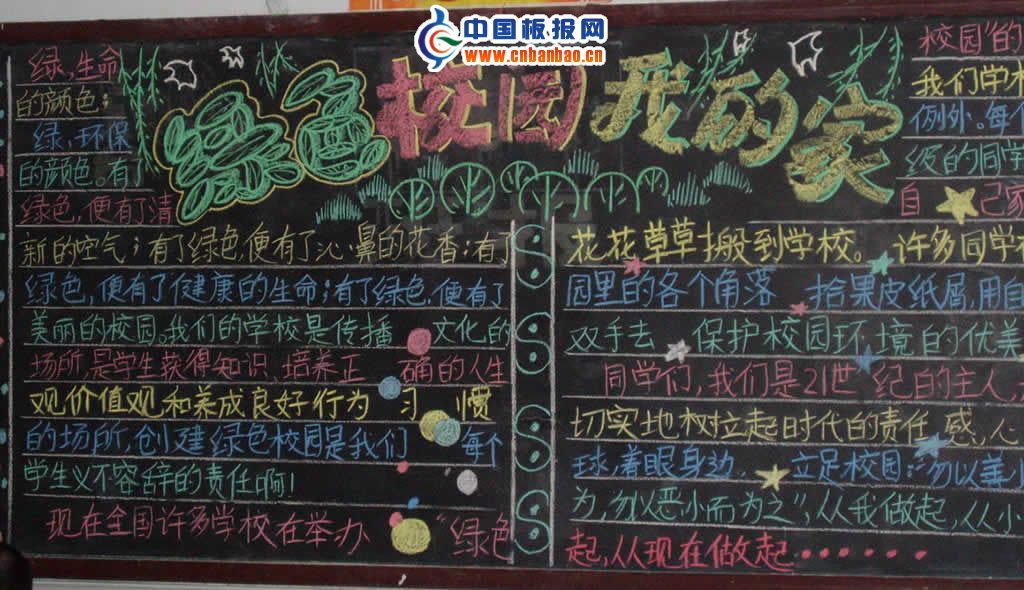 中国板报网
www.cnbanbao.cn
绿色校园我的家
绿,生命
的颜色;
绿,环保
的颜色。有了
绿色,便有了清
新的空气;有了绿色,便有了沁鼻的花香;有了
绿色,便有了健康的生命;有了绿色,便有了
美丽的校园。我们的学校是传播 文化的
场所,是学生获得知识、培养正 确的人生
观价值观和养成良好行为 习 惯
的场所,创建绿色校园是我们 每个
学生义不容辞的责任啊!
现在全国许多学校在举办 “绿色
校园”的
我们学校
例外。每个
级的同学
自 己家
花花草草搬到学校。许多同学
园里的各个角落 拾果皮纸屑,用自
双手去 保护校园环境的优美
同学们,我们是21世 纪的主人,
切实地树立起时代的责任 感,心
球,着眼身边, 立足校园:“勿以善小
为,勿以恶小而为之”,从我做起,从小
起,从现在做起……